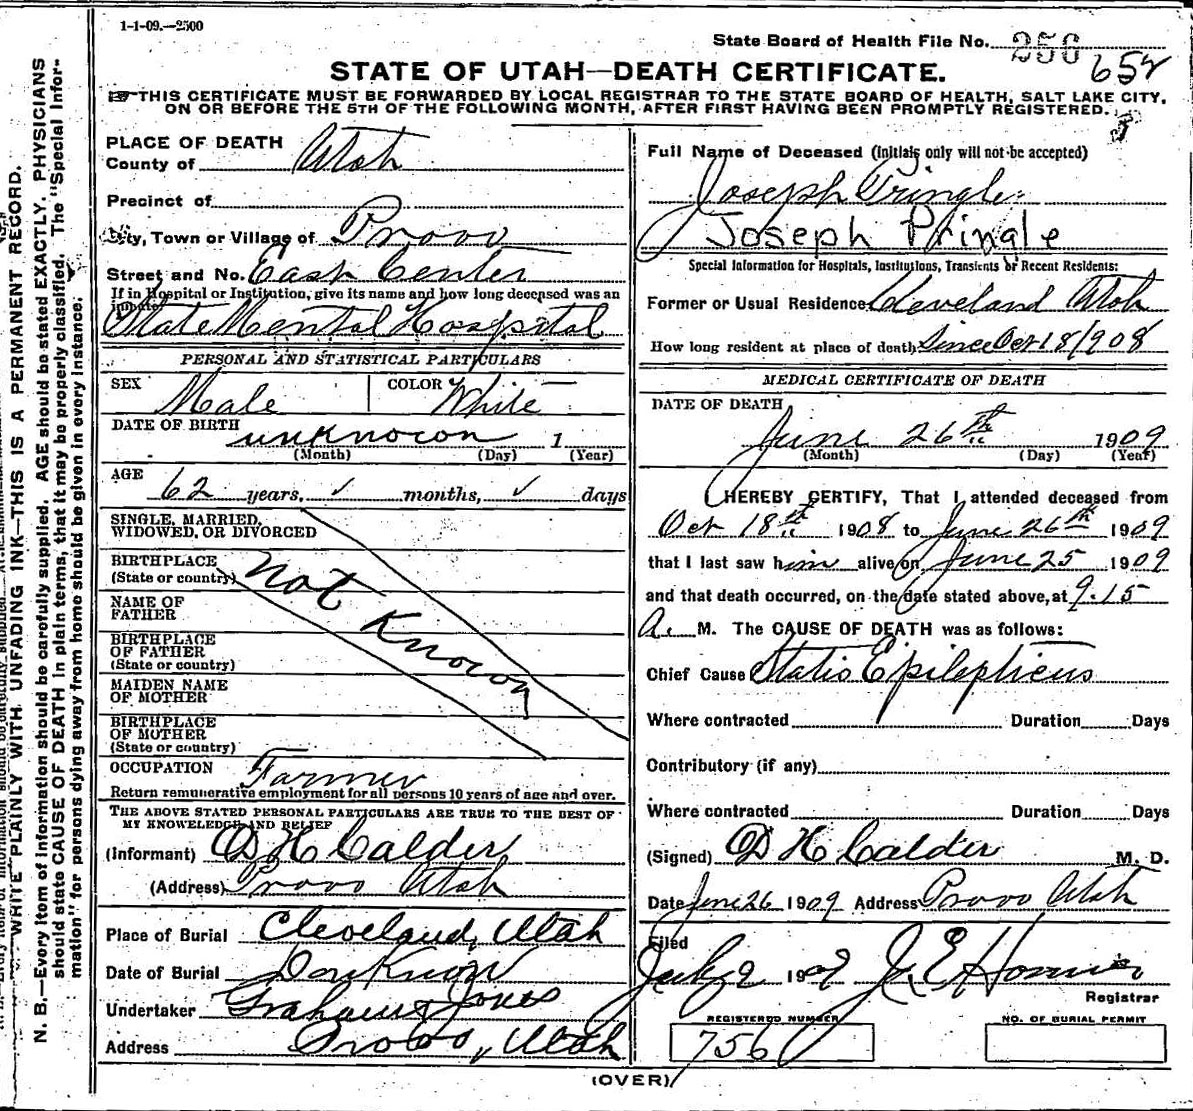 1-1-09.—2500
State Board of Health File No. 256
652
STATE OF UTAH—DEATH CERTIFICATE.
THIS CERTIFICATE MUST BE FORWARDED BY LOCAL REGISTRAR TO THE STATE BOARD OF HEALTH, SALT LAKE CITY,
ON OR BEFORE THE 5TH OF THE FOLLOWING MONTH, AFTER FIRST HAVING BEEN PROMPTLY REGISTERED.
N. B.—Every item of information should be carefully supplied. AGE should be stated EXACTLY. PHYSICIANS
should state CAUSE OF DEATH in plain terms, that it may be properly classified. The "Special Infor-
mation" for persons dying away from home should be given in every instance.
WRITE PLAINLY WITH UNFADING INK—THIS IS A PERMANENT RECORD.
PLACE OF DEATH
County of Utah
Precinct of
City, Town or Village of Provo
Street and No. East Center
If in Hospital or Institution, give its name and how long deceased was an
inmate
State Mental Hospital
PERSONAL AND STATISTICAL PARTICULARS
SEX Male COLOR White
DATE OF BIRTH unknown 1
(Month) (Day) (Year)
AGE 62 years, ✓ months, ✓ days
SINGLE, MARRIED,
WIDOWED, OR DIVORCED
BIRTHPLACE
(State or country)
Not Known
NAME OF
FATHER
BIRTHPLACE
OF FATHER
(State or country)
MAIDEN NAME
OF MOTHER
BIRTHPLACE
OF MOTHER
(State or country)
OCCUPATION Farmer
Return remunerative employment for all persons 10 years of age and over.
THE ABOVE STATED PERSONAL PARTICULARS ARE TRUE TO THE BEST OF
MY KNOWELEDGE AND BELIEF
(Informant) D H Calder
(Address) Provo Utah
Place of Burial Cleveland, Utah
Date of Burial Don Know
Undertaker Graham & Jones
Address Provo, Utah
Full Name of Deceased (initials only will not be accepted)
Joseph Pringle
Joseph Pringle
Special Information for Hospitals, Institutions, Transients or Recent Residents:
Former or Usual Residence Cleveland Utah
How long resident at place of death Since Oct 18/908
MEDICAL CERTIFICATE OF DEATH
DATE OF DEATH
June 26th 1909
(Month) (Day) (Year)
I HEREBY CERTIFY, That I attended deceased from
Oct 18th 1908 to June 26th 1909
that I last saw him alive on June 25 1909
and that death occurred, on the date stated above, at 9.15
A. M. The CAUSE OF DEATH was as follows:
Chief Cause Statis Epilepticus
Where contracted Duration Days
Contributory (if any)
Where contracted Duration Days
(Signed) D H Calder M. D.
Date June 26 1909 Address Provo Utah
Filed
July 2 1909 J. E. Homer
Registrar
REGISTERED NUMBER
756
NO. OF BURIAL PERMIT
(OVER)